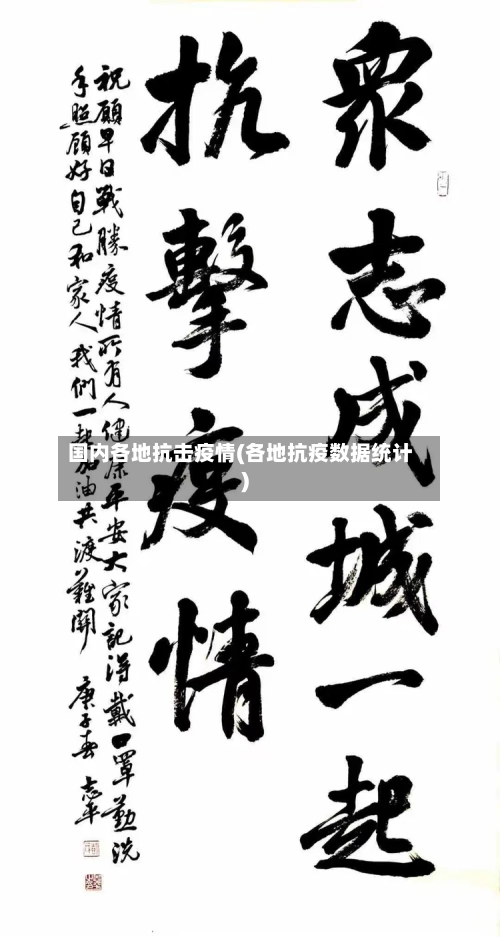 眾志成城一起
抗擊疫情
祝願早日戰勝疫情所有人健康平安大家記得戴口罩勤洗
手照顾好自己和家人我們一起加油共渡難關
庚子春 志平
国内各地抗击疫情(各地抗疫数据统计
)